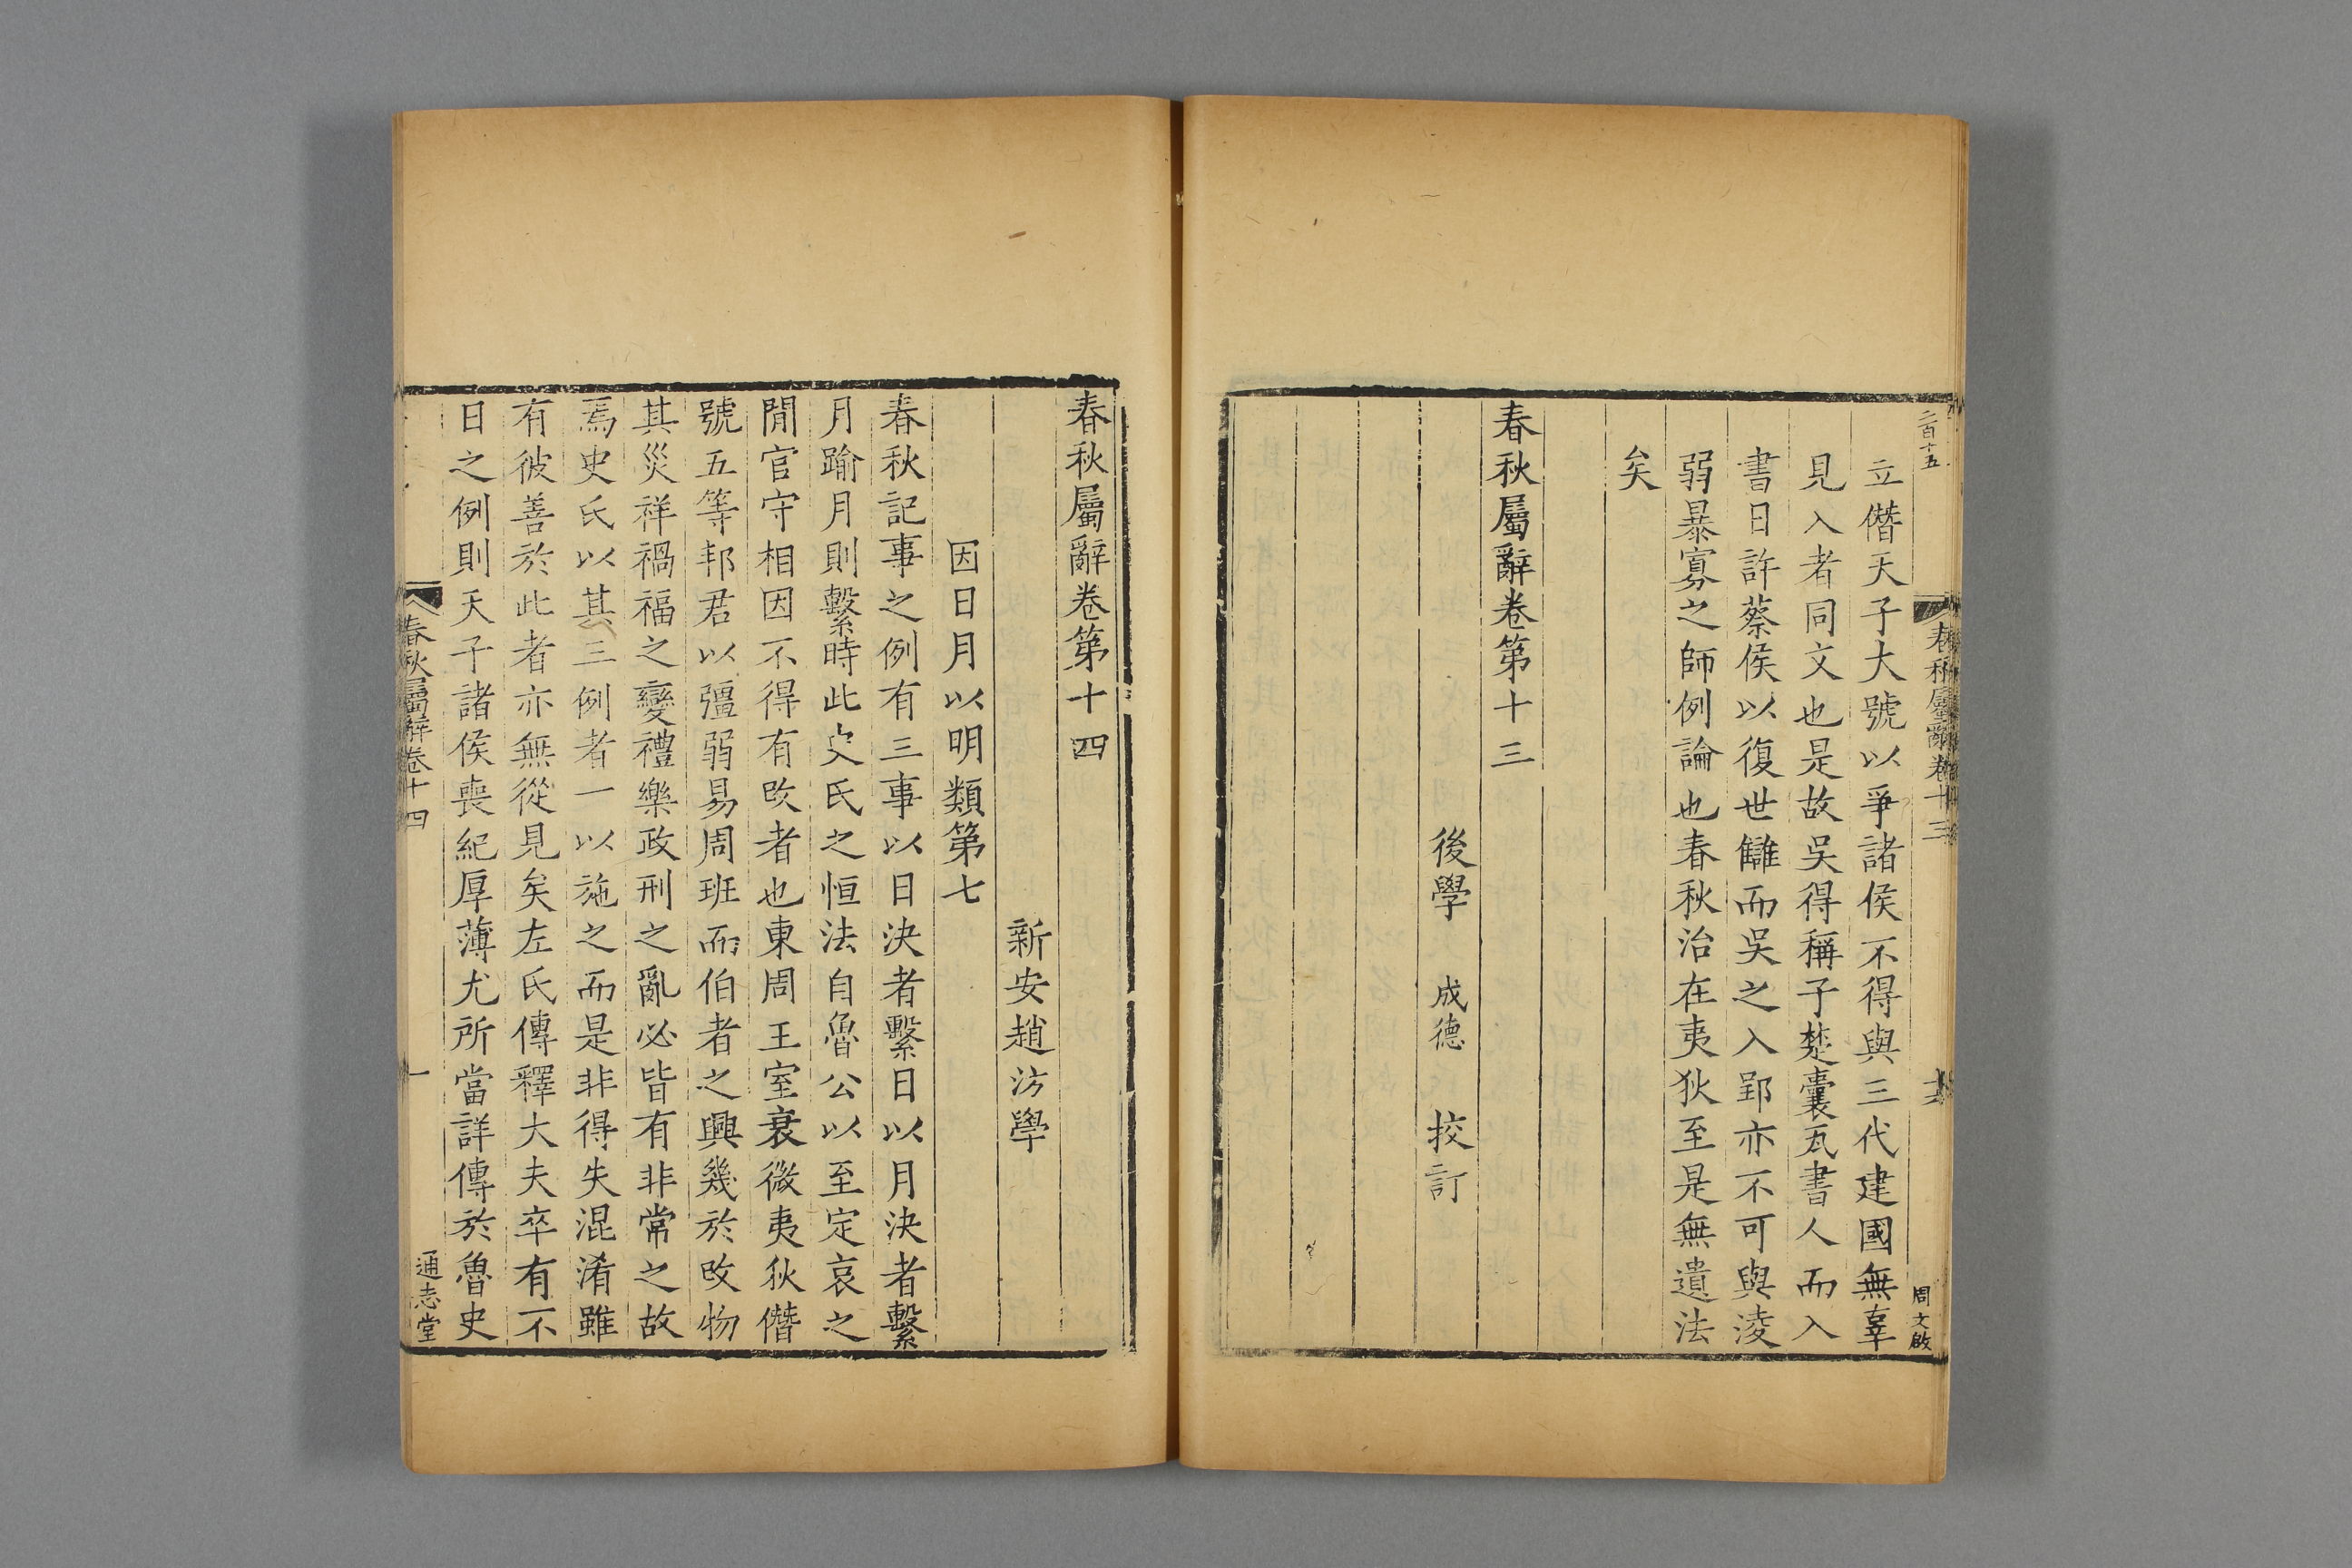 二百十五
春秋屬辭卷十三
周文啟
立僭天子大號以爭諸侯不得與三代建國無辜
見入者同文也是故吳得稱子楚囊瓦書人而入
書日許蔡侯以復世讎而吳之入郢亦不可與淩
弱暴寡之師例論也春秋治在夷狄至是無遺法
矣
春秋屬辭卷第十三
後學 成德 挍訂
春秋屬辭卷第十四
新安趙汸學
因日月以明類第七
春秋記事之例有三事以日決者繫日以月決者繫
月踰月則繫時此史氏之恒法自魯公以至定哀之
閒官守相因不得有攺者也東周王室衰微夷狄僭
號五等邦君以彊弱易周班而伯者之興幾於攺物
其災祥禍福之變禮樂政刑之亂必皆有非常之故
焉史氏以其三例者一以施之而是非得失混淆雖
有彼善於此者亦無從見矣左氏傳釋大夫卒有不
日之例則天子諸侯喪紀厚薄尤所當詳傳於魯史
春秋屬辭卷十四
一
通志堂